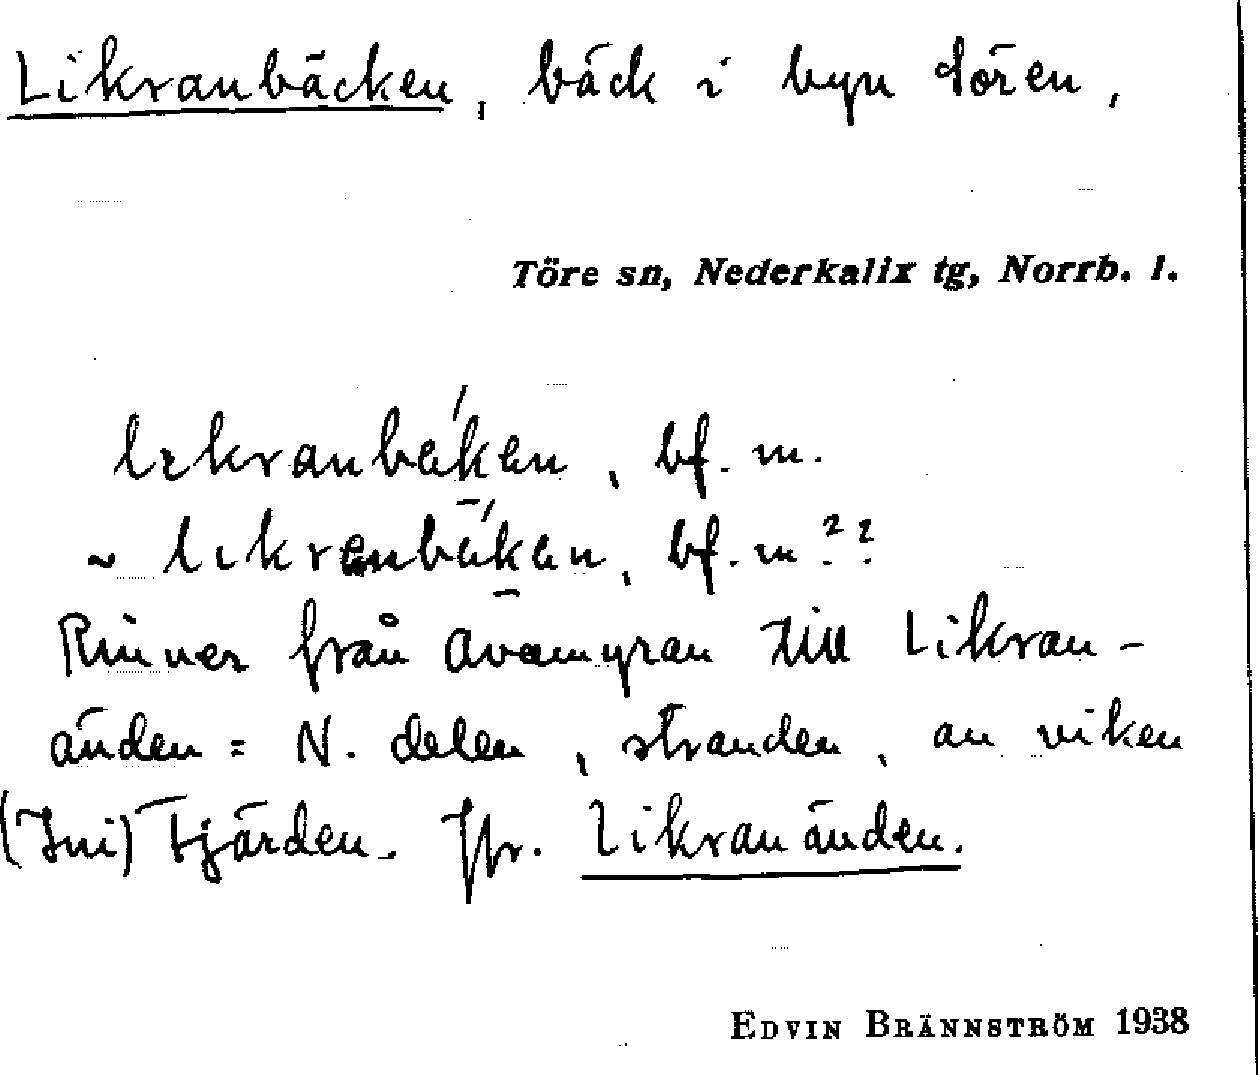 Likranbäcken, bäck i byn Tören,
Töre sn, Nederkalix tg, Norrb. l.
likranbeken, bf. m.
~ likranbäken, bf. m. ? ?
Rinner från Avamyran till Likran-
änden = N. delen, stranden, av viken
(Ini) Fjärden. Jfr. Likranänden.
EDVIN BRÄNNSTRÖM 1938